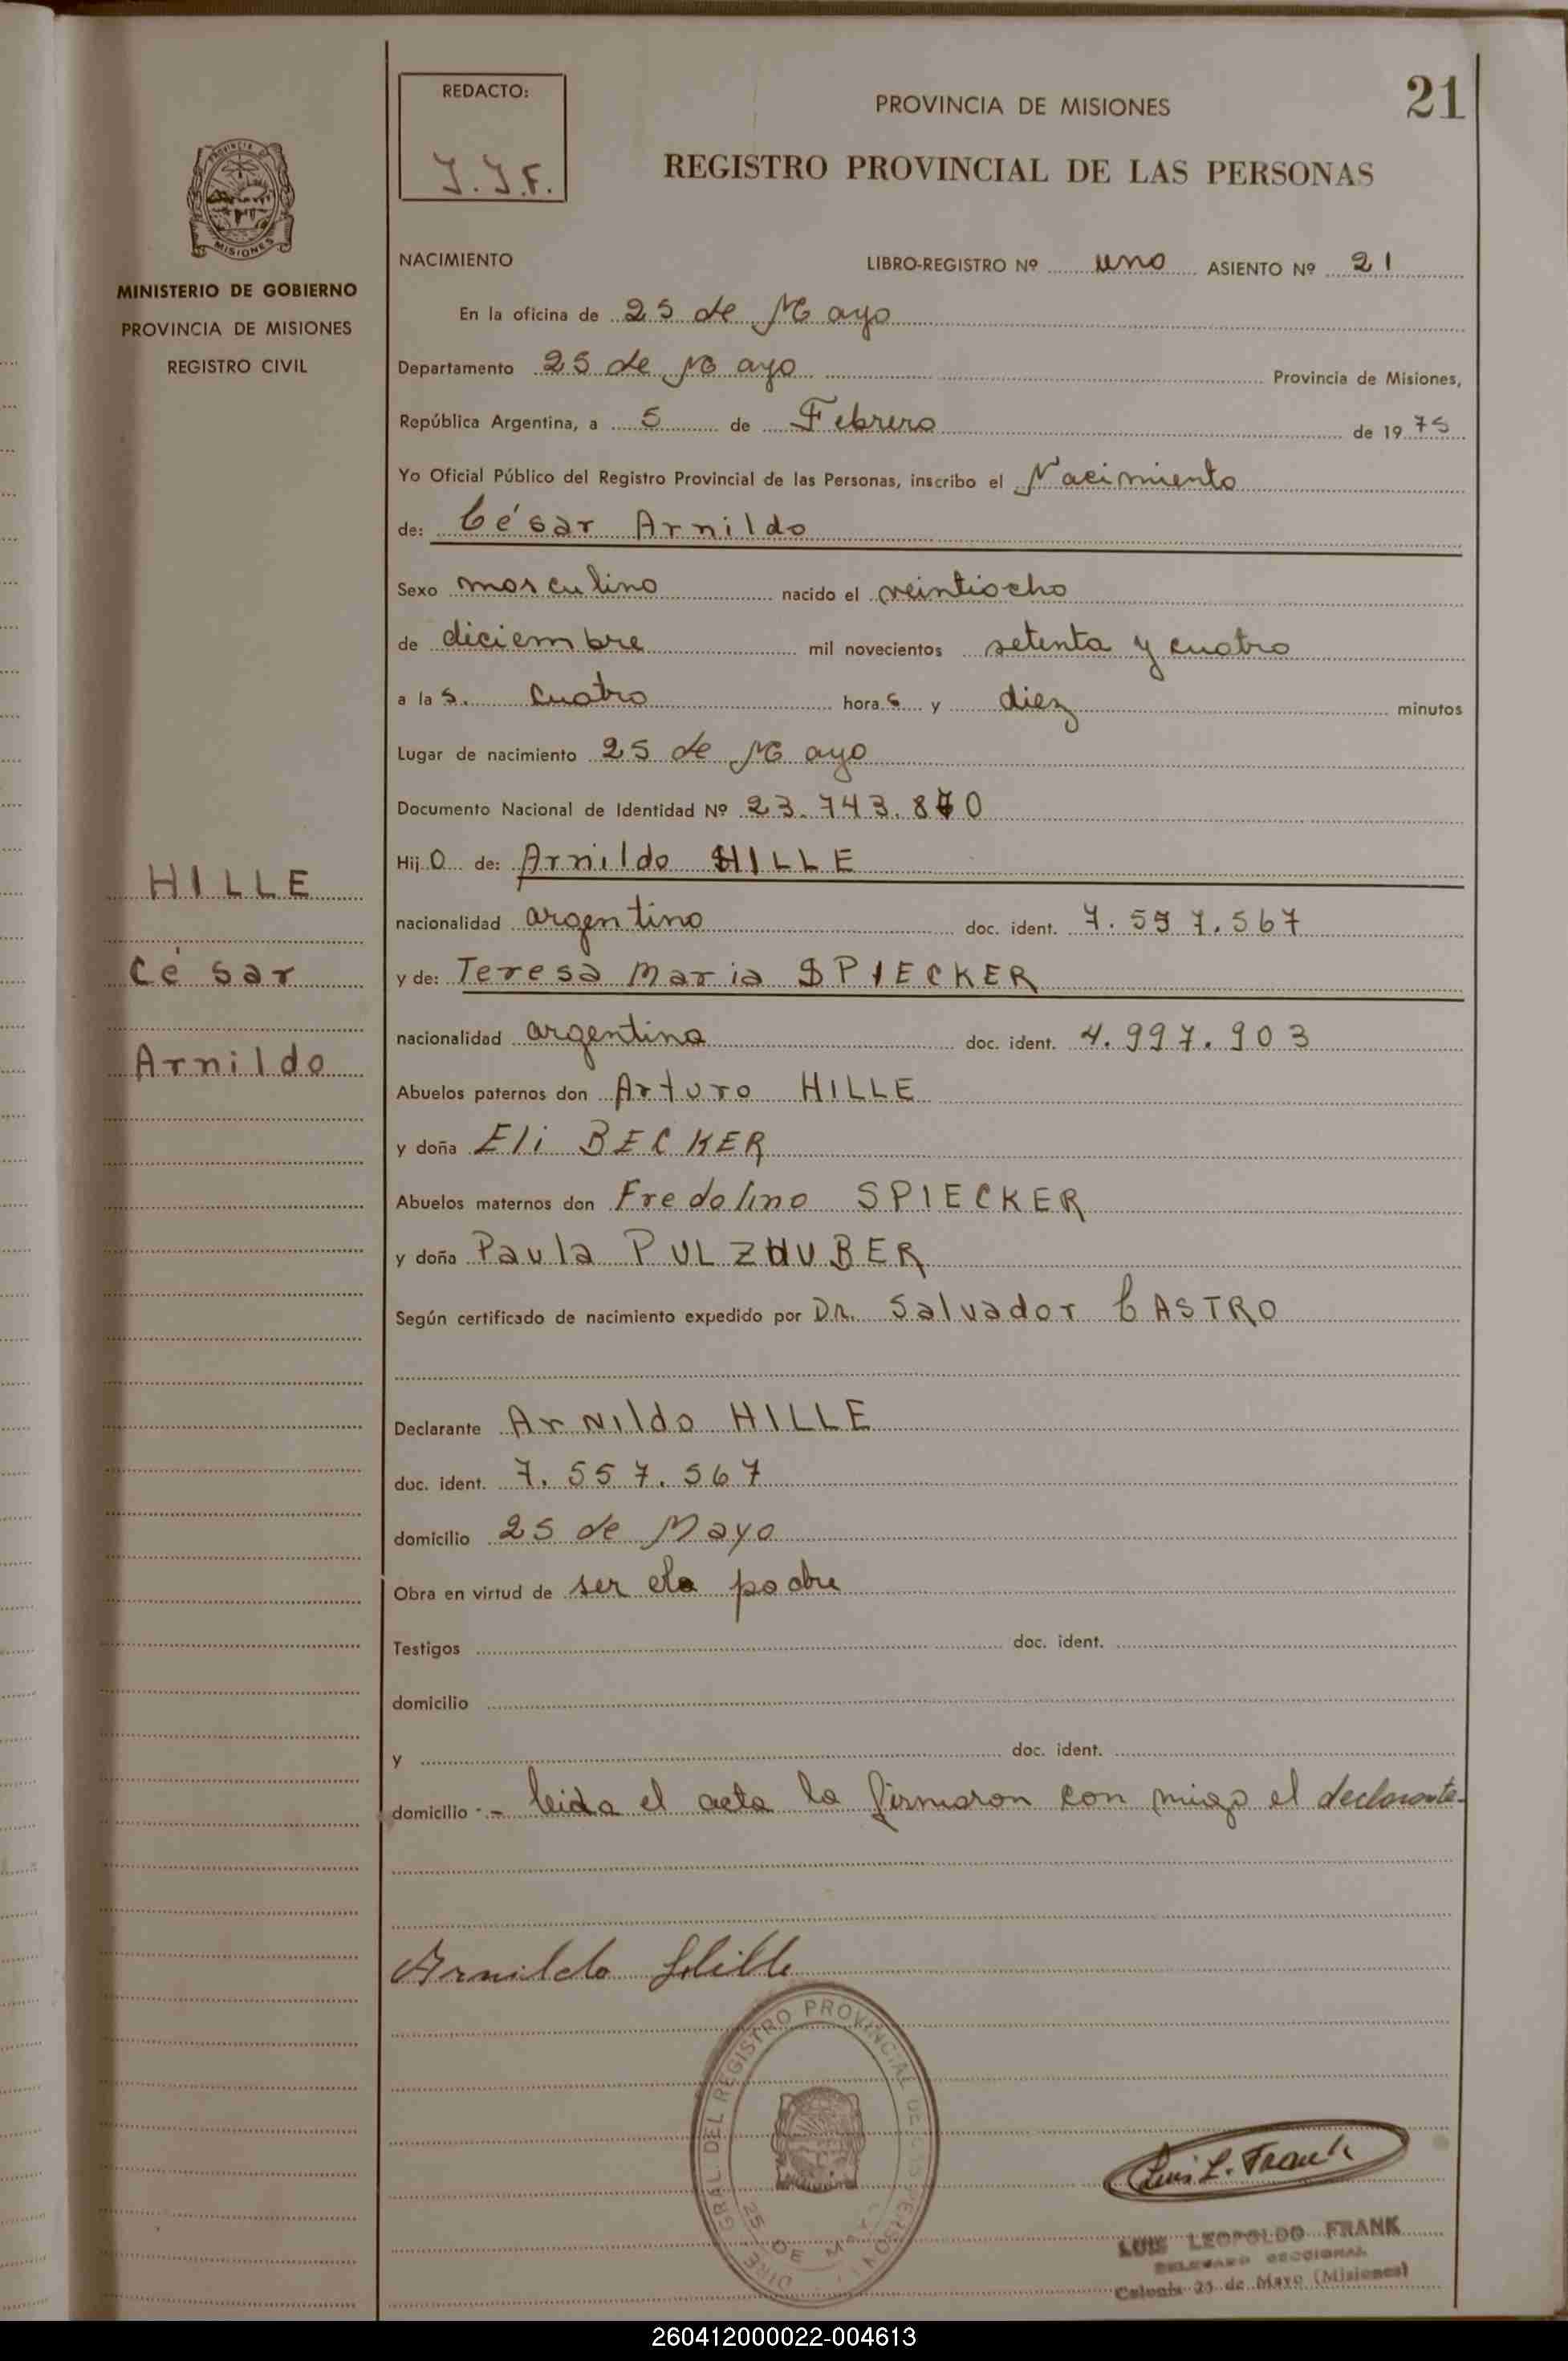 REDACTO:
J.J.F.
PROVINCIA DE MISIONES
21
REGISTRO PROVINCIAL DE LAS PERSONAS
PROVINCIA DE
MISIONES
MINISTERIO DE GOBIERNO
PROVINCIA DE MISIONES
REGISTRO CIVIL
NACIMIENTO LIBRO-REGISTRO Nº uno ASIENTO Nº 21
En la oficina de 25 de Mayo
Departamento 25 de Mayo Provincia de Misiones,
República Argentina, a 5 de Febrero de 1975
Yo Oficial Público del Registro Provincial de las Personas, inscribo el Nacimiento
de: César Arnildo
Sexo masculino nacido el veintiocho
de diciembre mil novecientos setenta y cuatro
a las. cuatro horas y diez minutos
Lugar de nacimiento 25 de Mayo
Documento Nacional de Identidad Nº 23.743.870
HILLE
César
Arnildo
Hijo de: Arnildo HILLE
nacionalidad argentino doc. ident. 7.557.567
y de: Teresa Maria SPIECKER
nacionalidad argentina doc. ident. 4.997.903
Abuelos paternos don Arturo HILLE
y doña Eli BECKER
Abuelos maternos don Fredolino SPIECKER
y doña Paula PULZHUBER
Según certificado de nacimiento expedido por DR. Salvador CASTRO
Declarante Arnildo HILLE
doc. ident. 7.557.567
domicilio 25 de Mayo
Obra en virtud de ser el padre
Testigos doc. ident.
domicilio
y doc. ident.
domicilio - leida el acta la firmaron con migo el declarante-
Arnildo Hille
DIRE. GRAL. DEL REGISTRO PROVINCIAL DE LAS PERSONAS
25 DE MAYO
Luis L. Frank
LUIS LEOPOLDO FRANK
DELEGADO SECCIONAL
Colonia 25 de Mayo (Misiones)
260412000022-004613